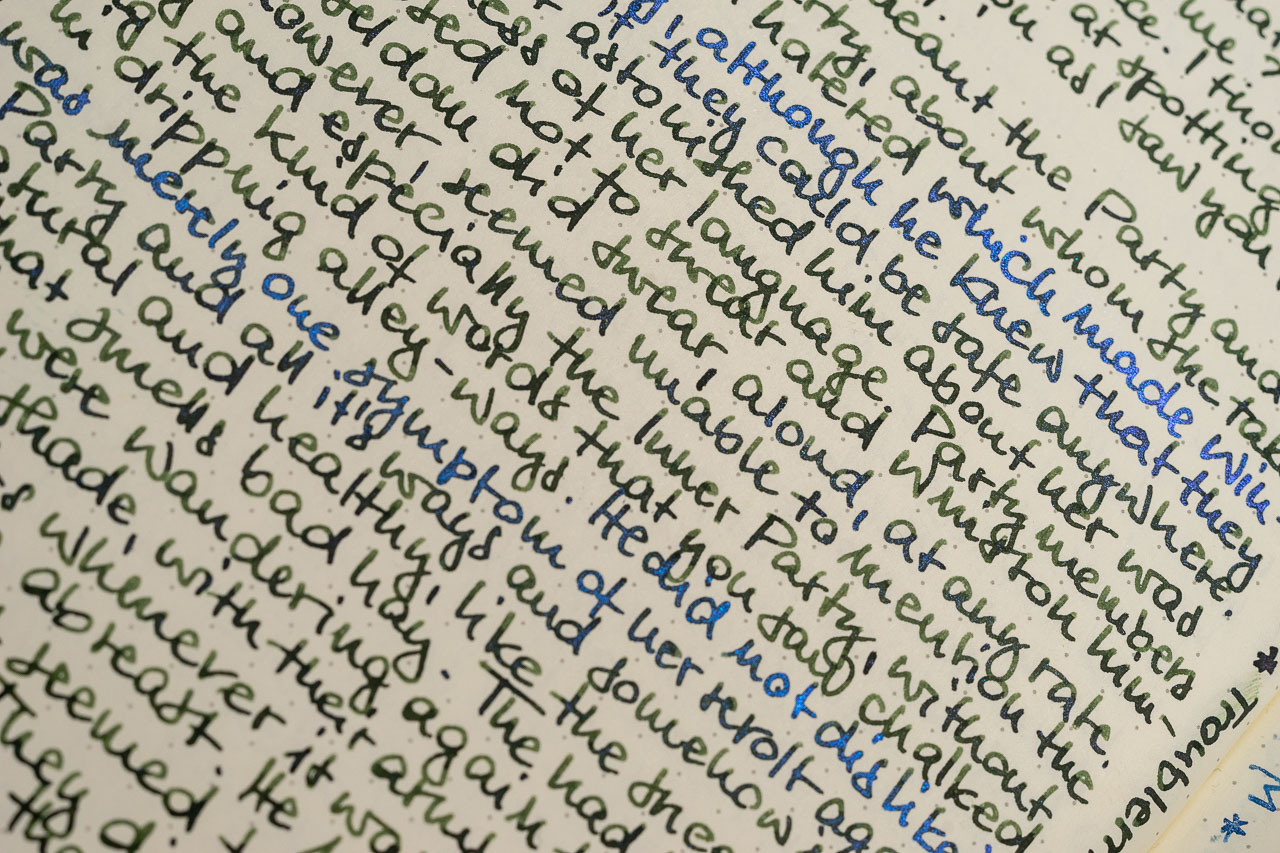 at spotting
as I saw you
meant the Party and
about whom she
hatred which made Win
although he knew that they
if they could be safe anywhere.
astonished him about her was
of her language. Party members
not to swear and Winston him-
seldom did swear, aloud, at any rate.
however seemed unable to mention the
and especially the Inner Party, without
the kind of words that you saw chalked
in dripping alley-ways. He did not dislike
was merely one symptom of her revolt
Party and all it's ways and somehow
and healthy, like the
that smells bad hay. The had
were wandering again
shade, with their
whenever it
abreast. He
seemed
They
*
*